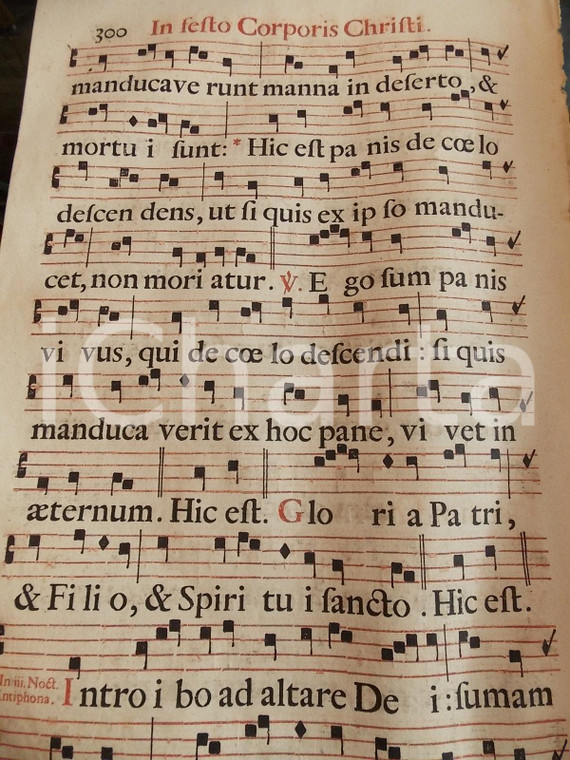 300 In feſto Corporis Chriſti.
manducave runt manna in deſerto, &
mortu i ſunt: * Hic eſt pa nis de cœ lo
deſcen dens, ut ſi quis ex ip ſo mandu-
cet, non mori atur. ℣. E go ſum pa nis
vi vus, qui de cœ lo deſcendi : ſi quis
iCharta
manduca verit ex hoc pane, vi vet in
æternum. Hic eſt. Glo ri a Pa tri,
& Fi li o, & Spiri tu i ſancto . Hic eſt.
In iii. Noct.
Antiphona.
Intro i bo ad altare De i : ſumam